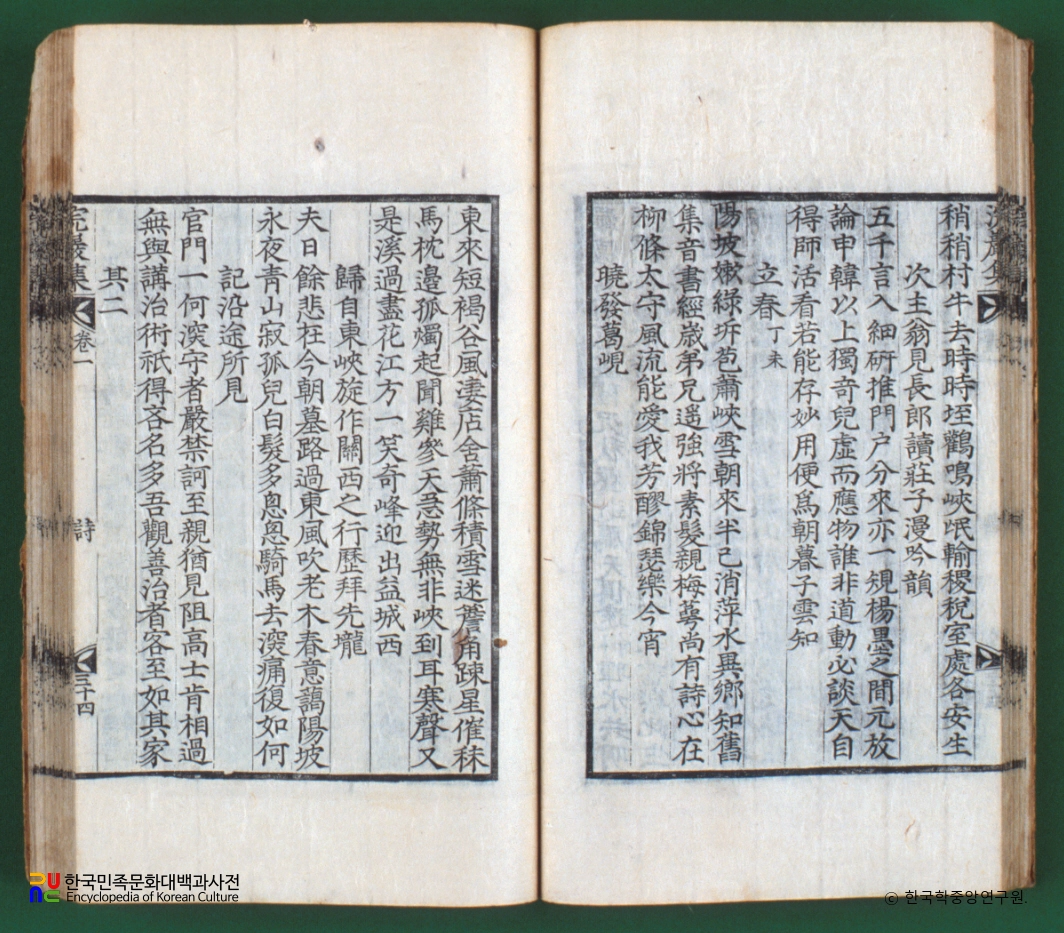 稍稍村牛去時時垤鸛鳴峽氓輸稷稅室處各安生
次主翁見長郎讀莊子漫吟韻
五千言入細硏推門户分來亦一規楊墨之間元放
論申韓以上獨奇兒虛而應物誰非道動必談天自
得師活看若能存妙用便爲朝暮子雲知
立春丁未
陽坡嫩綠坼芭蕭峽雪朝來半已消萍水異鄕知舊
集音書經歲弟兄遥強將素髮親梅萼尚有詩心在
柳條太守風流能愛我芳醪錦瑟樂今宵
曉發葛峴
東來短褐谷風凄店舍蕭條積雪迷簷角踈星催秣
馬枕邊孤燭起聞雞參天惡勢無非峽到耳寒聲又
是溪過盡花江方一笑奇峰迎出益城西
歸自東峽旋作關西之行歷拜先壠
夫日餘悲在今朝墓路過東風吹老木春意藹陽坡
永夜青山寂孤兒白髮多悤悤騎馬去深痛復如何
記沿途所見
官門一何深守者嚴禁訶至親猶見阻高士肯相過
無與講治術祇得吝名多吾觀善治者客至如其家
其二
完巖集 卷一 詩 三十四
한국민족문화대백과사전
Encyclopedia of Korean Culture
© 한국학중앙연구원